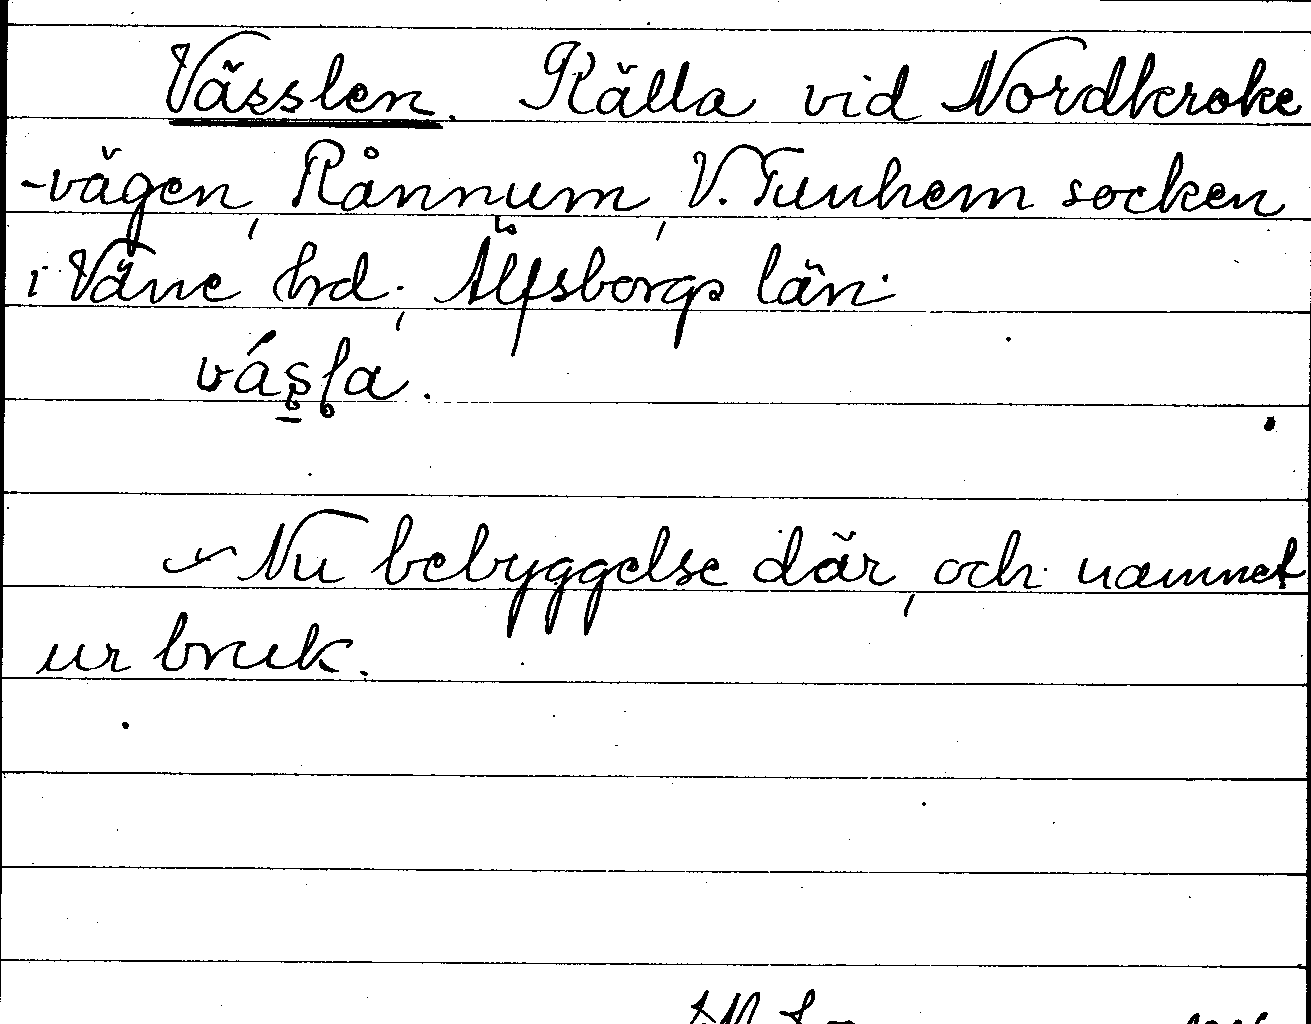 Vässlen. Källa vid Nordkroke
-vägen, Rånnum, V. Tunhem socken
i Väne hrd., Älfsborgs län.
vásla.
Nu bebyggelse där, och namnet
ur bruk.